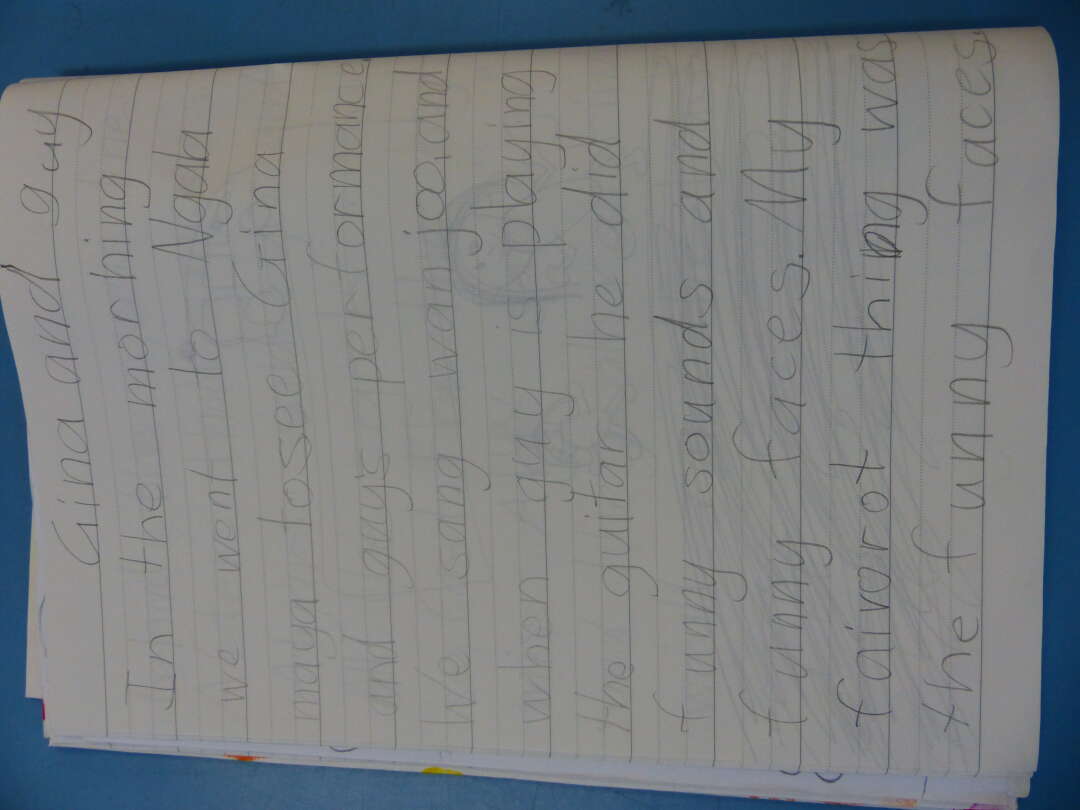 Gina and guy
In the morhing
we went to Ngala
maya to see Gina
and guy's performance.
We sang wanjoo. and
when guy is playing
the guitar he did
funny sounds and
funny faces. My
fairorot thing was
the funny faces.